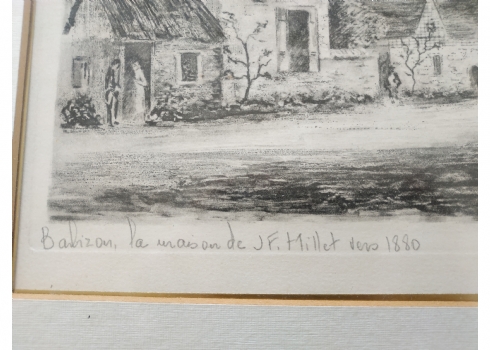 Babizon, la maison de J.F. Millet vers 1880